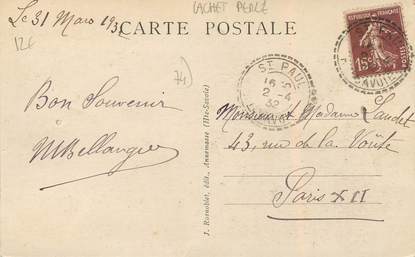 CACHET PERLÉ
Le 31 Mars 193
12€
CARTE POSTALE
74)
REPUBLIQUE FRANÇAISE
15c
ST PAUL
16
2-4
32
SAVOIE
Bon Souvenir
MBellanger
Monsieur et Madame Laudet
43, rue de la Voûte
Paris XII
J. Rosnoblet, édit., Annemasse (Hte-Savoie)